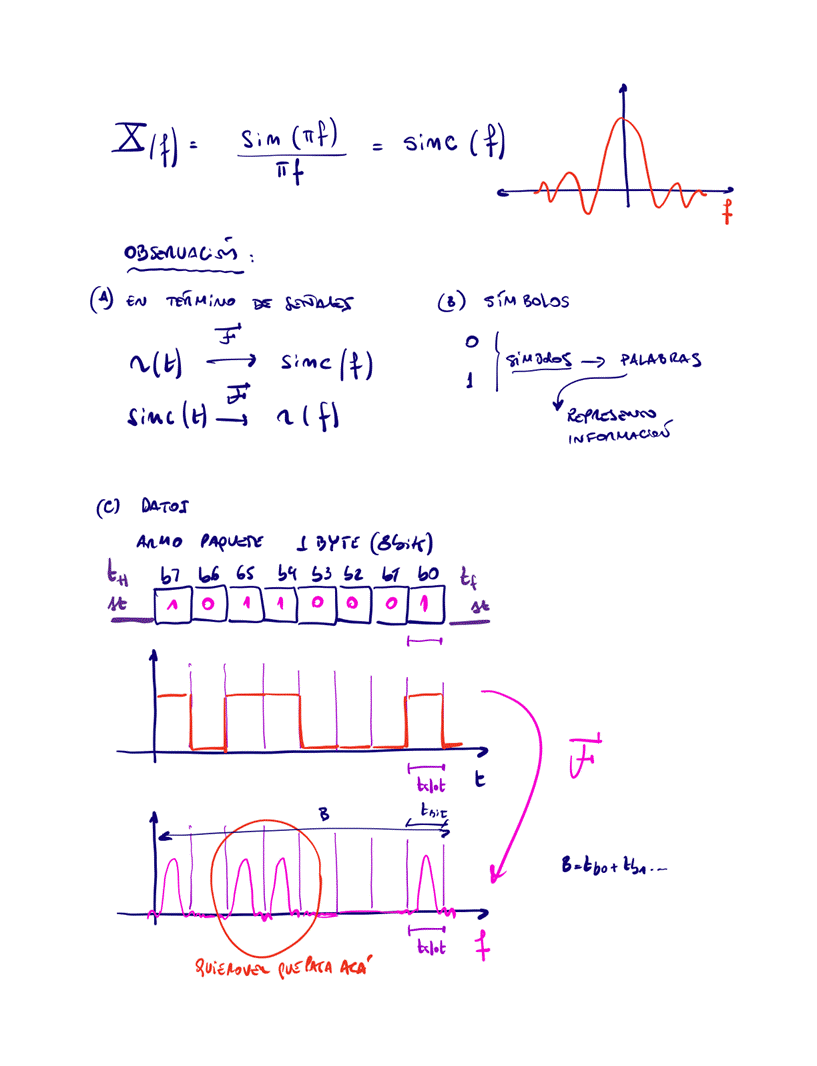 X(f) = sin(πf) / πf = sinc(f)
f
OBSERVACIÓN:
(A) EN TÉRMINO DE SEÑALES
r(t) F→ sinc(f)
sinc(t) F→ r(f)
(B) SÍMBOLOS
0
1
SÍMBOLOS → PALABRAS
REPRESENTO
INFORMACIÓN
(C) DATOS
ARMO PAQUETE 1 BYTE (8bit)
tH b7 b6 b5 b4 b3 b2 b1 b0 tf
st 1 0 1 1 0 0 0 1 st
F
t
tslot
B
tbit
B = tb0 + tb1 ...
tslot
f
QUIERO VER QUE PASA ACÁ